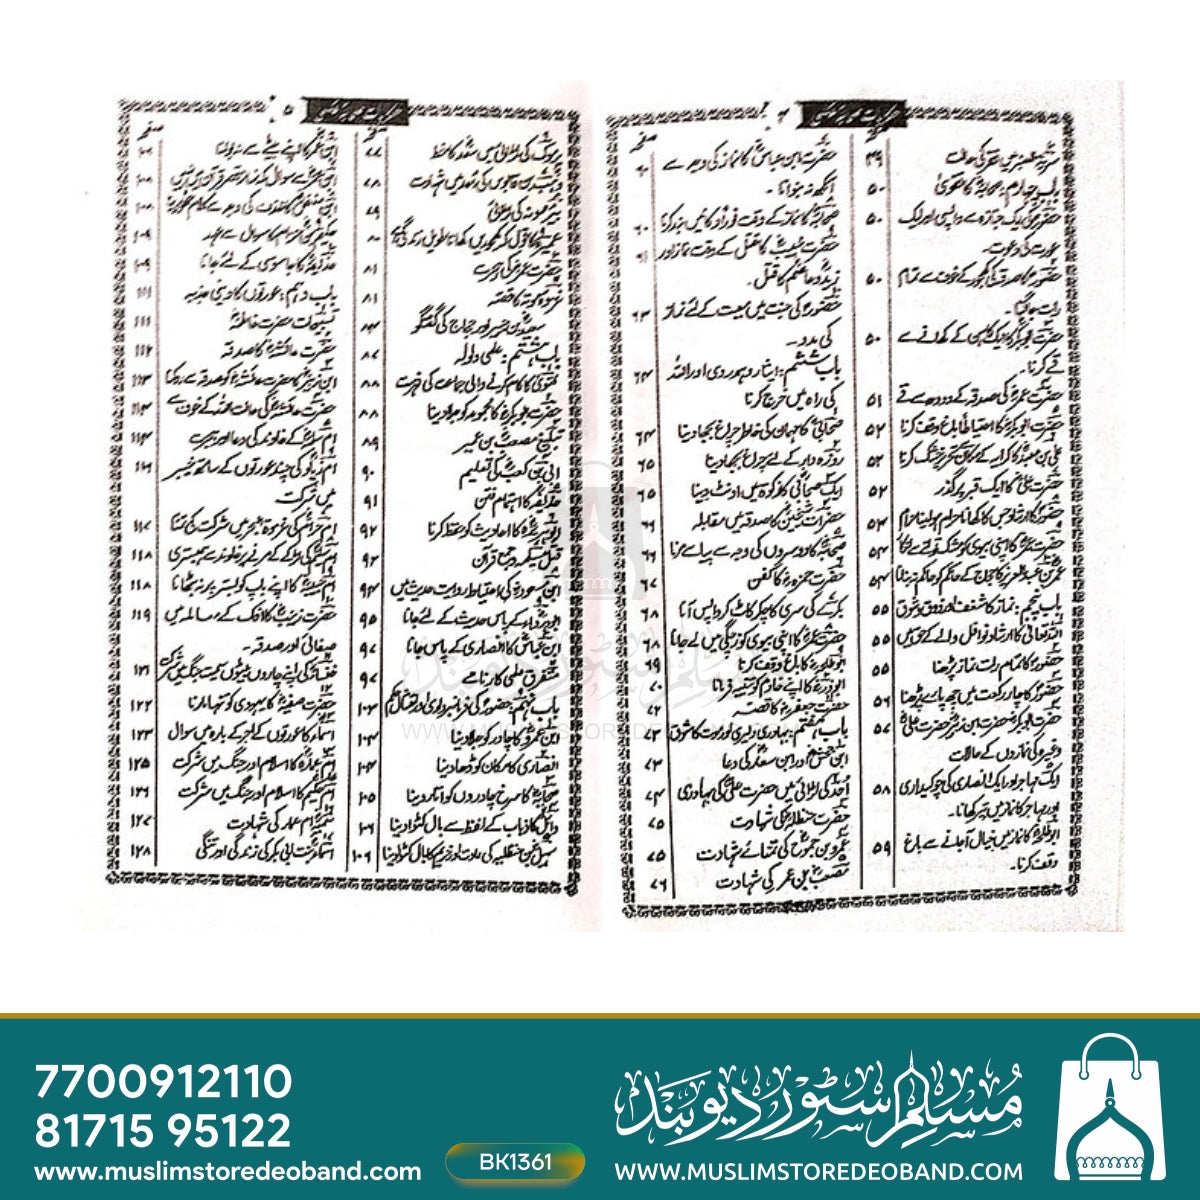 صفحہ
سریہ عنبر میں فقر کی حالت ۴۹
باب چہارم: صحابہؓ کا تقویٰ ۵۰
حضورؐ کی ایک جنازے سے واپسی اور ایک ۵۰
عورت کی دعوت
حضورؐ کا صدقہ کی کھجور کے خوف سے تمام ۵۰
رات جاگنا۔
حضرت ابوبکرؓ کا ایک کاہن کے کھانے سے ۵۰
قے کرنا۔
حضرت عمرؓ کی صدقہ کے دودھ سے قے ۵۱
حضرت ابوبکرؓ کا احتیاطاً باغ وقف کرنا ۵۲
علی بن معبدؒ کا کرایہ کے مکان سے تحریر خشک کرنا ۵۲
حضرت علیؓ کا ایک قبر پر گذر ۵۲
حضورؐ کا ارشاد جس کا کھانا حرام ہو لباس حرام ۵۳
حضرت عمرؓ کا اپنی بیوی کو مشک تولنے سے انکار ۵۴
عمر بن عبدالعزیزؒ کا حجاج کے حاکم کو حاکم نہ بنانا ۵۴
باب پنجم: نماز کا شغف اور ذوق و شوق ۵۵
اللہ تعالیٰ کا ارشاد نوافل والے کے حق میں ۵۵
حضورؐ کا تمام رات نماز پڑھنا ۵۵
حضورؐ کا چار رکعت میں چھ پارے پڑھنا ۵۶
حضرت ابوبکرؓ حضرت ابن زبیرؓ حضرت علیؓ ۵۷
وغیرہ کی نمازوں کے حالات
ایک مہاجر اور ایک انصاری کی چوکیداری ۵۸
اور مہاجر کا نماز میں تیر کھانا۔
ابوطلحہؓ کا نماز میں خیال آجانے سے باغ ۵۹
وقف کرنا۔
صفحہ
حضرت ابن عباسؓ کا نماز کی وجہ سے ۶۰
آنکھ نہ بنوانا۔
صحابہؓ کا نماز کے وقت فوراً دوکانیں بند کرنا ۶۰
حضرت خبیبؓ کا قتل کے وقت نماز اور ۶۱
زیدؓ و عاصمؓ کا قتل۔
حضورؐ کی جنت میں معیت کے لئے نماز ۶۳
کی مدد۔
باب ششم: ایثار و ہمدردی اور اللہ ۶۴
کی راہ میں خرچ کرنا
صحابیؓ کا مہمان کی خاطر چراغ بجھا دینا ۶۴
روزہ دار کے لئے چراغ بجھا دینا ۶۵
ایک صحابیؓ کا زکوٰۃ میں اونٹ دینا ۶۵
حضرات شیخینؓ کا صدقہ میں مقابلہ ۶۶
صحابہؓ کا دوسروں کی وجہ سے پیاسے مرنا ۶۶
حضرت حمزہؓ کا کفن ۶۷
بکرے کی سری کا چکر کاٹ کر واپس آنا ۶۸
حضرت عمرؓ کا اپنی بیوی کو زچگی میں لے جانا ۶۸
ابوطلحہؓ کا باغ وقف کرنا ۶۹
ابوذرؓ کا اپنے خادم کو تنبیہ فرمانا ۷۰
حضرت جعفرؓ کا قصہ ۷۲
باب ہفتم: بہادری دلیری اور موت کا شوق ۷۳
ابن جحشؓ اور ابن سعدؓ کی دعا ۷۳
اُحد کی لڑائی میں حضرت علیؓ کی بہادری ۷۴
حضرت حنظلہؓ کی شہادت ۷۵
عمرو بن جموحؓ کی تمنائے شہادت ۷۵
مصعب بن عمیرؓ کی شہادت ۷۶
۵
صفحہ
یرموک کی لڑائی میں سعدؓ کا خط ۷۷
وہب بن قابوس کی اُحد میں شہادت ۷۸
بیر معونہ کی لڑائی ۷۹
عمیرؓ کا قول کہ کھجوریں کھانا طویل زندگی ہے ۸۰
حضرت عمرؓ کی ہجرت ۸۱
غزوہ موتہ کا قصہ ۸۱
سعید بن جبیر اور حجاج کی گفتگو ۸۴
باب ہشتم: علمی ولولہ ۸۷
فتویٰ کا کام کرنے والی جماعت کی فہرست ۸۸
حضرت ابوبکرؓ کا مجموعہ کو جلا دینا ۸۸
تبلیغ مصعب بن عمیر ۸۹
ابی بن کعبؓ کی تعلیم ۹۰
حذیفہؓ کا اہتمام فتن ۹۱
ابوہریرہؓ کا احادیث کو حفظ کرنا ۹۲
قتل مسیلمہ و جمع قرآن ۹۳
ابن مسعودؓ کی احتیاط روایت حدیث میں ۹۴
ابوالدرداءؓ کے پاس حدیث کے لئے جانا ۹۵
ابن عباسؓ کا انصاری کے پاس جانا ۹۷
متفرق علمی کارنامے ۹۷
باب نہم: حضورؐ کی فرمانبرداری اور امتثال حکم ۱۰۳
ابن عمروؓ کا چادر کو جلا دینا ۱۰۴
انصاری کا مکان کو ڈھا دینا ۱۰۴
صحابہؓ کا سرخ چادروں کو اتار دینا ۱۰۵
وائلؓ کا ذباب کے لفظ سے بال کٹوا دینا ۱۰۶
سہیل بن حنظلیہ کی عادت اور خریم کا بال کٹوا دینا ۱۰۶
صفحہ
ابن عمرؓ کا اپنے بیٹے سے نہ بولنا
ابن عمرؓ سے سوال کہ نماز قصر قرآن میں نہیں ۱۰۸
ابن مغفلؓ کا خذف کی وجہ سے کلام چھوڑ دینا ۱۰۸
حکیم بن حزام کا سوال سے عہد ۱۰۹
حذیفہؓ کا جاسوسی کے لئے جانا ۱۰۹
باب دہم: عورتوں کا دینی جذبہ ۱۱۱
تسبیحات حضرت فاطمہؓ ۱۱۱
حضرت عائشہؓ کا صدقہ ۱۱۲
ابن زبیرؓ کا حضرت عائشہؓ کو صدقہ سے روکنا ۱۱۳
حضرت عائشہؓ کی حالت اللہ کے خوف سے ۱۱۴
ام سلمہؓ کے خاوند کی دعا اور ہجرت ۱۱۴
ام زیادؓ کی چند عورتوں کے ساتھ خیبر ۱۱۶
میں شرکت
ام حرامؓ کی غزوۃ البحر میں شرکت کی تمنا ۱۱۷
ام سلیمؓ کی لڑکے کے مرنے پر خاوند سے ہمبستری ۱۱۸
ام حبیبہؓ کا اپنے باپ کو بستر پر نہ بٹھانا ۱۱۸
حضرت زینبؓ کا افک کے معاملہ میں ۱۱۹
صفائی اور صدقہ۔
خنساءؓ کی اپنے چاروں بیٹوں سمیت جنگ میں شرکت ۱۲۱
حضرت صفیہؓ کا یہودی کو تنہا مارنا ۱۲۲
اسماءؓ کا عورتوں کے اجر کے بارہ میں سوال ۱۲۳
ام عمارہؓ کا اسلام اور جنگ میں شرکت ۱۲۵
ام حکیمؓ کا اسلام اور جنگ میں شرکت ۱۲۶
سمیہؓ ام عمارؓ کی شہادت ۱۲۷
اسماء بنت ابی بکرؓ کی زندگی اور تنگی ۱۲۸
مسلم سٹور دیوبند
WWW.MUSLIMSTOREDEOBAND.COM
7700912110
81715 95122
www.muslimstoredeoband.com
BK1361
مسلم سٹور دیوبند
WWW.MUSLIMSTOREDEOBAND.COM